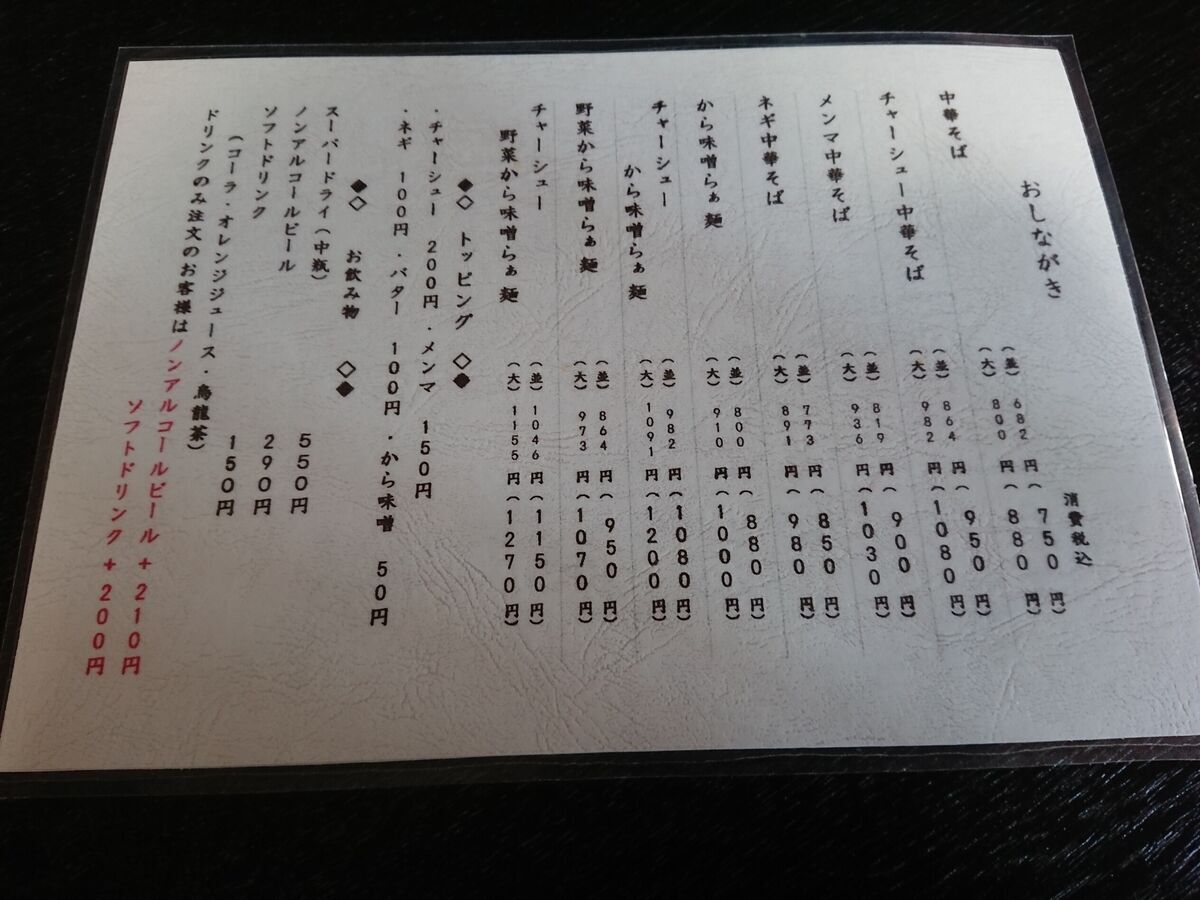 おしながき
消費税込
中華そば (並) 682円(750円)
(大) 800円(880円)
チャーシュー中華そば (並) 864円(950円)
(大) 982円(1080円)
メンマ中華そば (並) 819円(900円)
(大) 936円(1030円)
ネギ中華そば (並) 773円(850円)
(大) 891円(980円)
から味噌らぁ麺 (並) 800円(880円)
(大) 910円(1000円)
チャーシュー
から味噌らぁ麺 (並) 982円(1080円)
(大) 1091円(1200円)
野菜から味噌らぁ麺 (並) 864円(950円)
(大) 973円(1070円)
チャーシュー
野菜から味噌らぁ麺 (並) 1046円(1150円)
(大) 1155円(1270円)
◆◇ トッピング ◇◆
・チャーシュー 200円 ・メンマ 150円
・ネギ 100円 ・バター 100円 ・から味噌 50円
◆◇ お飲み物 ◇◆
スーパードライ(中瓶) 550円
ノンアルコールビール 290円
ソフトドリンク 150円
(コーラ・オレンジジュース・烏龍茶)
ドリンクのみ注文のお客様はノンアルコールビール+210円
ソフトドリンク+200円